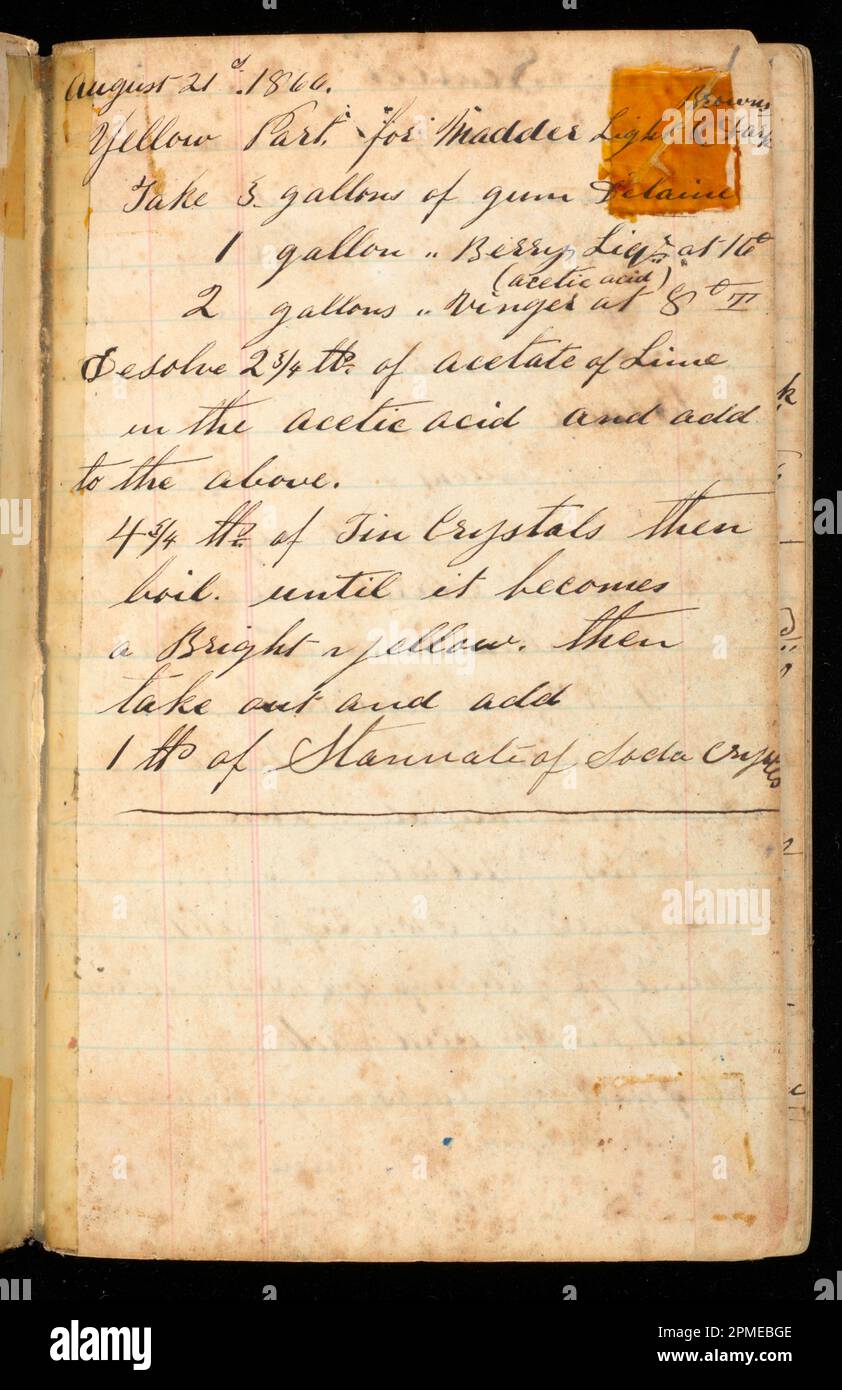 August 21d. 1860.
Browns
Yellow Part. for Madder Light & Dark
Take 3 gallons of gum Delaine
1 gallon " Berry Liqr. at 16°
(acetic acid)
2 gallons " Vinger at 8° T
Desolve 2 3/4 lbs. of acetate of Lime
in the acetic acid and add
to the above.
4 3/4 lbs. of Tin Crystals then
boil. until it becomes
a Bright yellow. then
take out and add
1 lb of Stannate of Soda Crystals
alamy
Image ID: 2PMEBGE
www.alamy.com